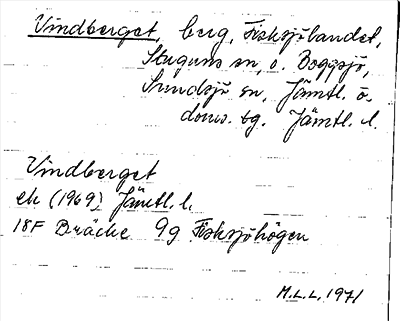 Vindberget, berg, Fisksjölandet,
Stuguns sn, o. Boggsjö,
Sundsjö sn, Jämtl. ö.
doms. bg. Jämtl. l.
Vindberget
ek (1969) Jämtl. l.
18F Bräcke 9g Fisksjöhögen
M.L.L. 1971